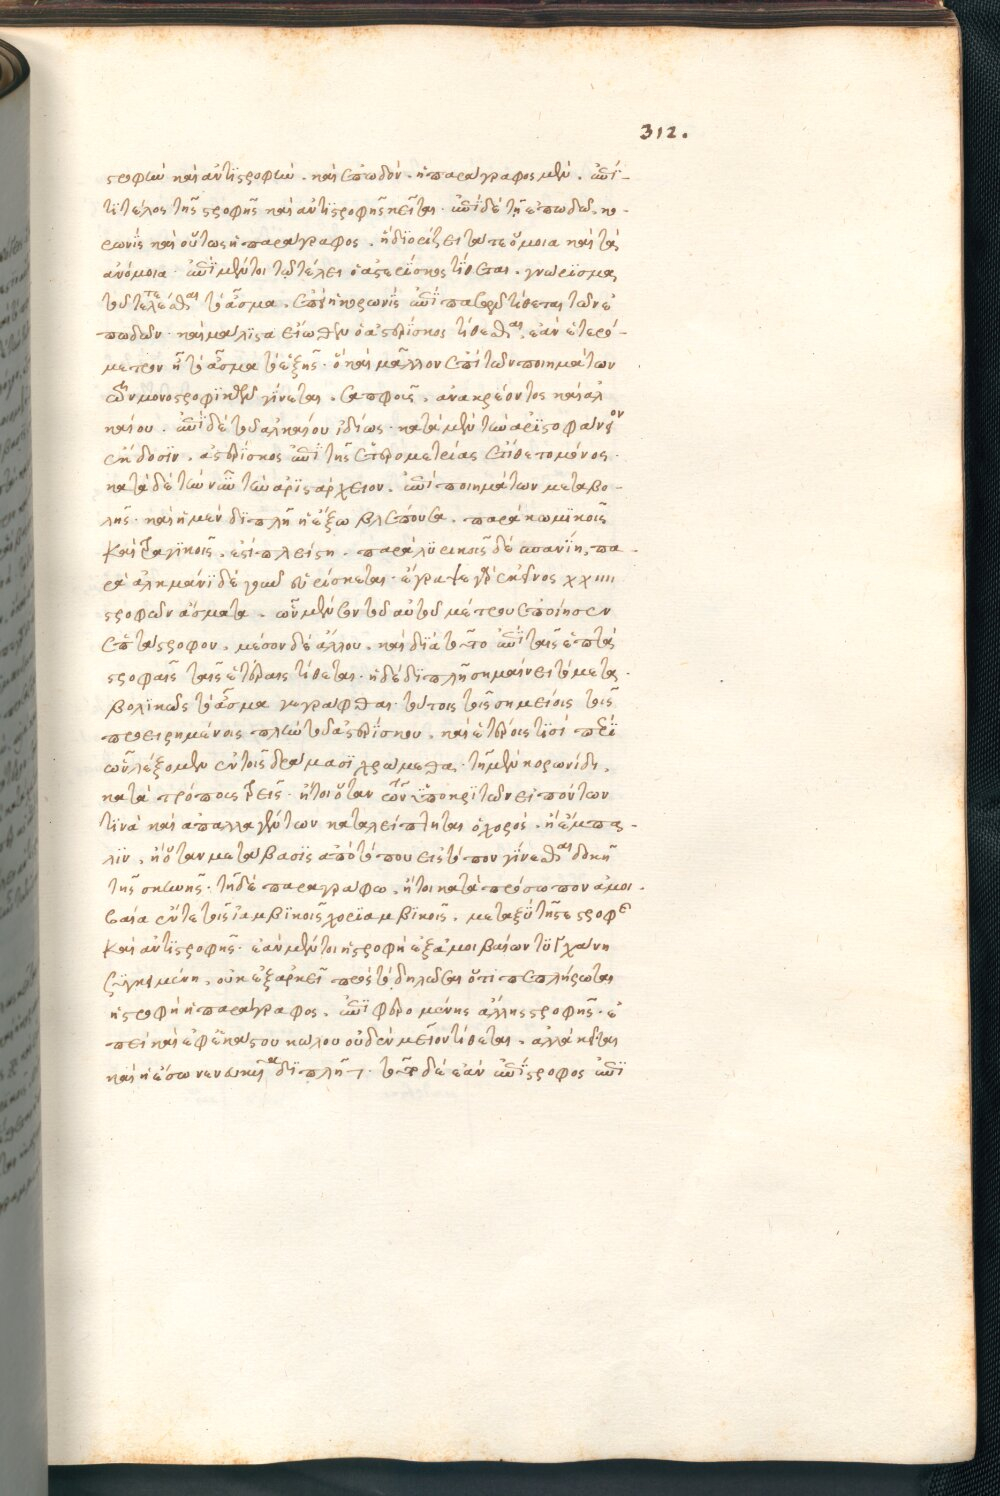 312.
στροφὴν καὶ ἀντιστροφὴν καὶ ἐπωδόν. ἡ παράγραφος μὲν. ἐπὶ
τὶ τέλος τῆς στροφῆς καὶ ἀντιστροφῆς κεῖται. ἐπὶ δὲ τῇ ἐπωδῷ, κο-
ρωνὶς καὶ οὕτως ἡ παράγραφος. ἡ διορίζει τά τε ὅμοια καὶ τὰ
ἀνόμοια. ἐπὶ μέντοι τῷ τέλει ὁ ἀστερίσκος τίθεται. γνώρισμα
τοῦ τετελέσθαι τὸ ᾆσμα. ἐπεὶ ἡ κορωνὶς ἐπὶ πασῶν τίθεται τῶν ἐ
πωδῶν. καὶ μάλιστα εἴωθεν ὁ ἀστερίσκος τίθεσθαι, ἐὰν ἑτερό-
μετρον ᾖ τὸ ᾆσμα τὸ ἑξῆς. ὃ καὶ μᾶλλον ἐπὶ τῶν ποιημάτων
τῶν μονοστροφικῶν γίνεται. σαπφοῦς, ἀνακρέοντος καὶ ἀλ
καίου. ἐπὶ δὲ τοῦ ἀλκαίου ἰδίως. κατὰ μὲν τὴν ἀριστοφάνειον
ἔκδοσιν. ἀστερίσκος ἐπὶ τῆς ἑτερομετρίας ἐτίθετο μόνος.
κατὰ δὲ τὴν νῦν τὴν ἀριστάρχειον. ἐπὶ ποιημάτων μεταβο-
λῆς. καὶ ἡ μὲν διπλῆ ἡ ἔξω βλέπουσα. παρὰ κωμικοῖς
καὶ τραγικοῖς. ἐστὶ πλείστη. παρὰ λυρικοῖς δὲ σπανίη, πα-
ρὰ ἀλκμάνι δὲ γοῦν εὑρίσκεται. ἔγραψε γὰρ ἐκεῖνος
στροφῶν ᾄσματα. ὧν μὲν ἓν τοῦ αὐτοῦ μέτρου ἐποίησεν
ἑπτάστροφον. μέσον δὲ ἄλλου. καὶ διὰ τοῦτο ἐπὶ ταῖς ἑπτὰ
στροφαῖς ταῖς ἑτέραις τίθεται. ἡ δὲ διπλῆ σημαίνει τὸ μετα-
βολικῶς τὸ ᾆσμα γεγράφθαι. τούτοις τοῖς σημείοις τοῖς
προειρημένοις πλὴν τοῦ ἀστερίσκου. καὶ ἑτέροις τισί περὶ
ὧν λέξομεν ἐν τοῖς δράμασι χρώμεθα. τῇ μὲν κορωνίδι,
κατὰ τρόπους τρεῖς. ἤτοι ὅταν τῶν ὑποκριτῶν εἰπόντων
τινὰ καὶ ἀπαλλαγέντων καταλείπηται ὁ χορός. ἢ ἔμπα-
λιν. ἢ ὅταν μετάβασις ἀπὸ τόπου εἰς τόπον γίνεσθαι δοκῇ
τῆς σκηνῆς. τῇ δὲ παραγράφῳ, ἤτοι κατὰ πρόσωπον ἀμοι-
βαῖα ἔν τε τοῖς ἰαμβικοῖς χοριαμβικοῖς. μεταξὺ τῆς στροφῆς
καὶ ἀντιστροφῆς. ἐὰν μέντοι ἡ στροφὴ ἐξ ἀμοιβαίων τυγχάνῃ
συγκειμένη, οὐκ ἐξαρκεῖ πρὸς τὸ δηλῶσαι ὅτι πεπλήρωται
ἡ στροφὴ ἡ παράγραφος. ἐπιφερομένης ἄλλης στροφῆς. ἐ
πεὶ καὶ ἐφ᾽ ἑκάστου κώλου οὐδὲν μεῖον τίθεται. ἀλλὰ κεῖται
καὶ ἡ ἔσω νενευκυῖα διπλῆ. τότε δὲ ἐὰν ἀντίστροφος ἐπὶ